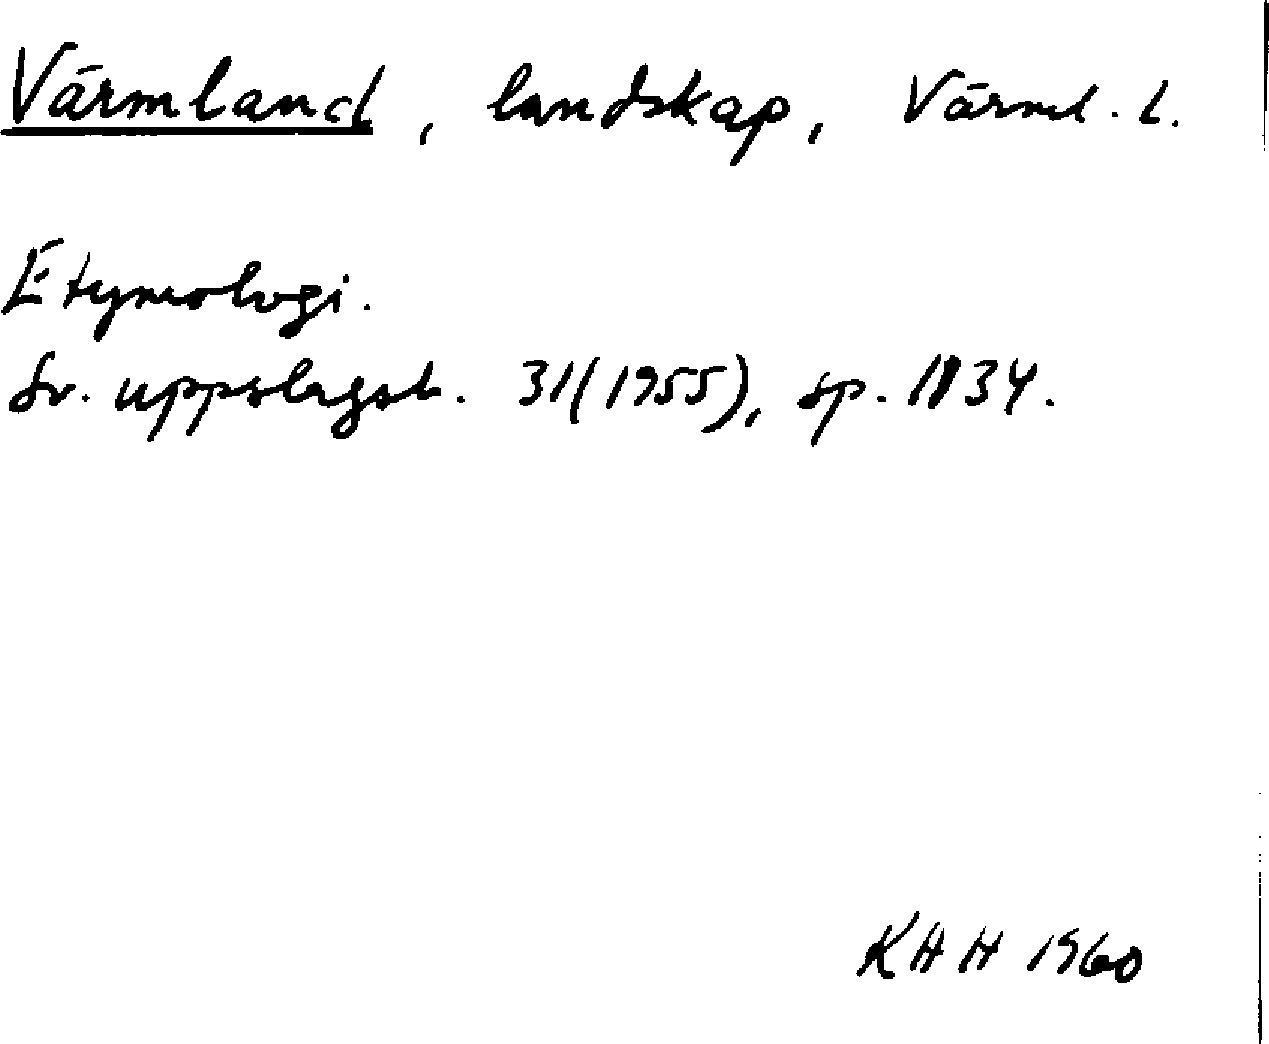 Värmland, landskap, Värml. l.
Etymologi.
Sv. uppslagsb. 31(1955), sp. 1134.
KHH 1960